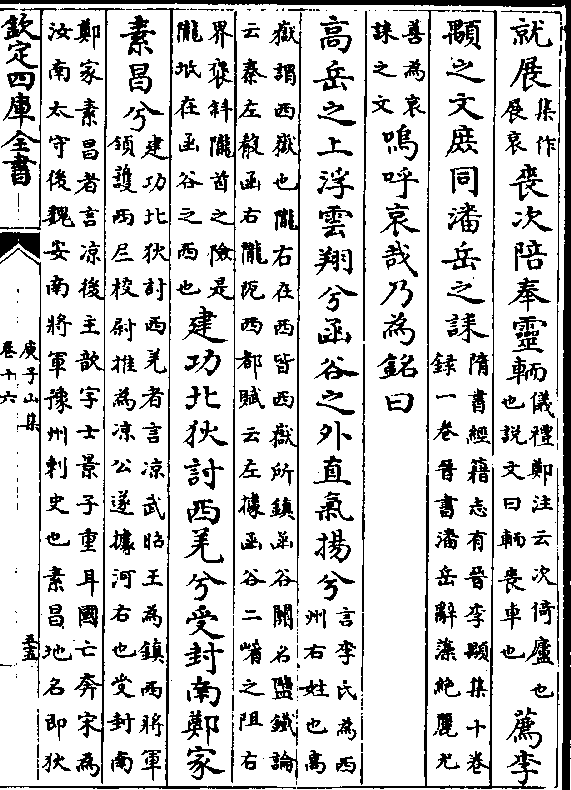 就展集作展哀喪次陪奉靈輀儀禮鄭注云次倚廬也也説文曰輀喪車也薦李
顒之文庶同潘岳之誄隋書經籍志有晉李顒集十卷録一卷晉書潘岳辭藻絶麗尤
善為哀誄之文嗚呼哀哉乃為銘曰
高岳之上浮雲翔兮函谷之外直氣揚兮言李氏為西州右姓也高
嶽謂西嶽也隴右在西皆西嶽所鎮函谷關名鹽鐵論
云秦左殽函右隴阺西都賦云左據函谷二崤之阻右
界褒斜隴首之險是隴坻在函谷之西也建功北狄討西羌兮受封南鄭家
素昌兮建功北狄討西羌者言凉武昭王為鎮西將軍領護西尼校尉推為凉公遂據河右也受封南
鄭家素昌者言凉後主歆字士景子重耳國亡奔宋為
汝南太守後魏安南將軍豫州刺史也素昌地名即狄
欽定四庫全書
庾子山集
卷十六